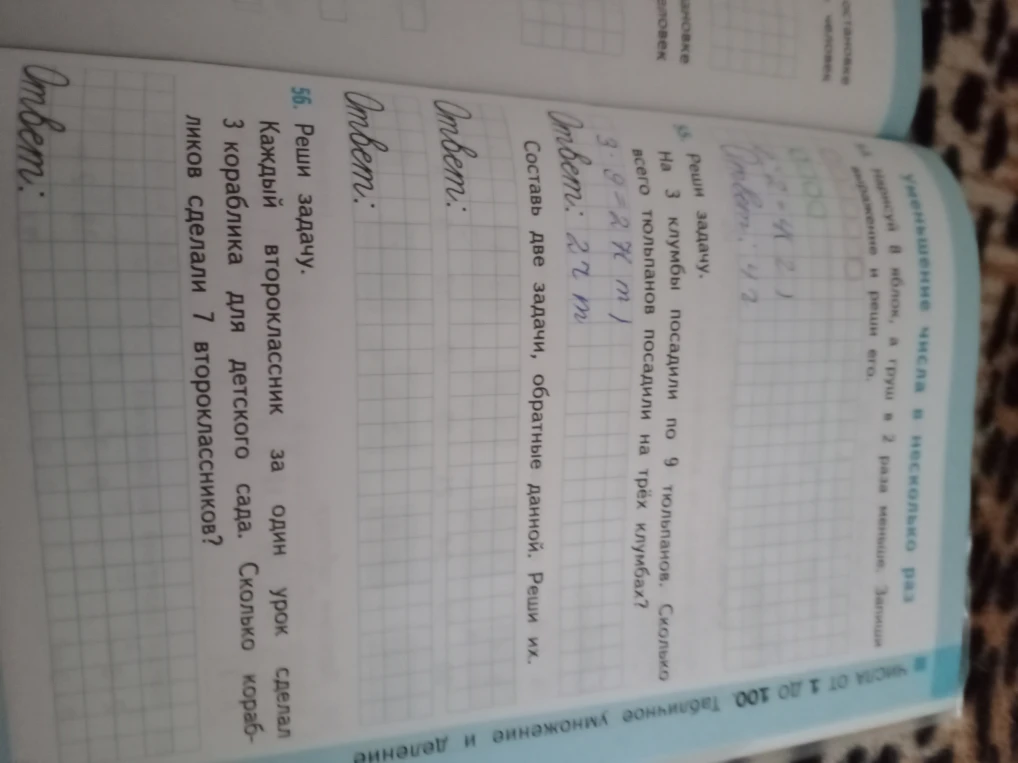 остановке
человек
уменьшение числа в несколько раз
Нарисуй 8 яблок, а груш в 2 раза меньше. Запиши
выражение и реши его.
Ответ: 4
Реши задачу.
На 3 клумбы посадили по 9 тюльпанов. Сколько
всего тюльпанов посадили на трёх клумбах?
3·9=27(т)
Ответ: 27 т
Составь две задачи, обратные данной. Реши их.
Ответ:
Ответ:
56. Реши задачу.
Каждый второклассник за один урок сделал
3 кораблика для детского сада. Сколько кораб-
ликов сделали 7 второклассников?
Ответ:
ЧИСЛА ОТ 1 ДО 100. Табличное умножение и деление